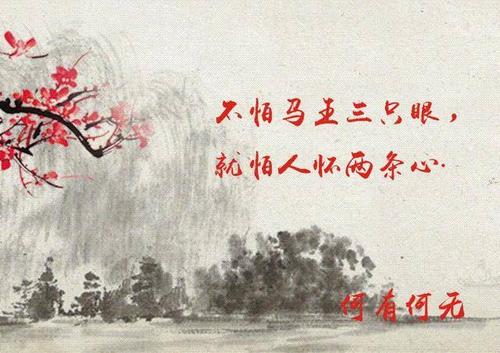 不怕马王三只眼，
就怕人怀两条心.
何有何无